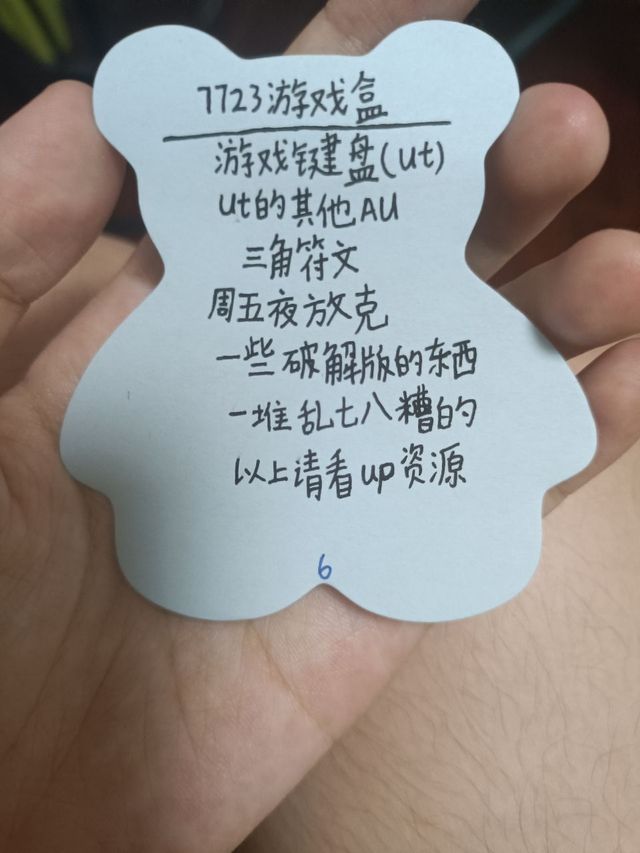 7723游戏盒
游戏键盘(ut)
ut的其他AU
三角符文
周五夜放克
一些破解版的东西
一堆乱七八糟的
以上请看up资源
6